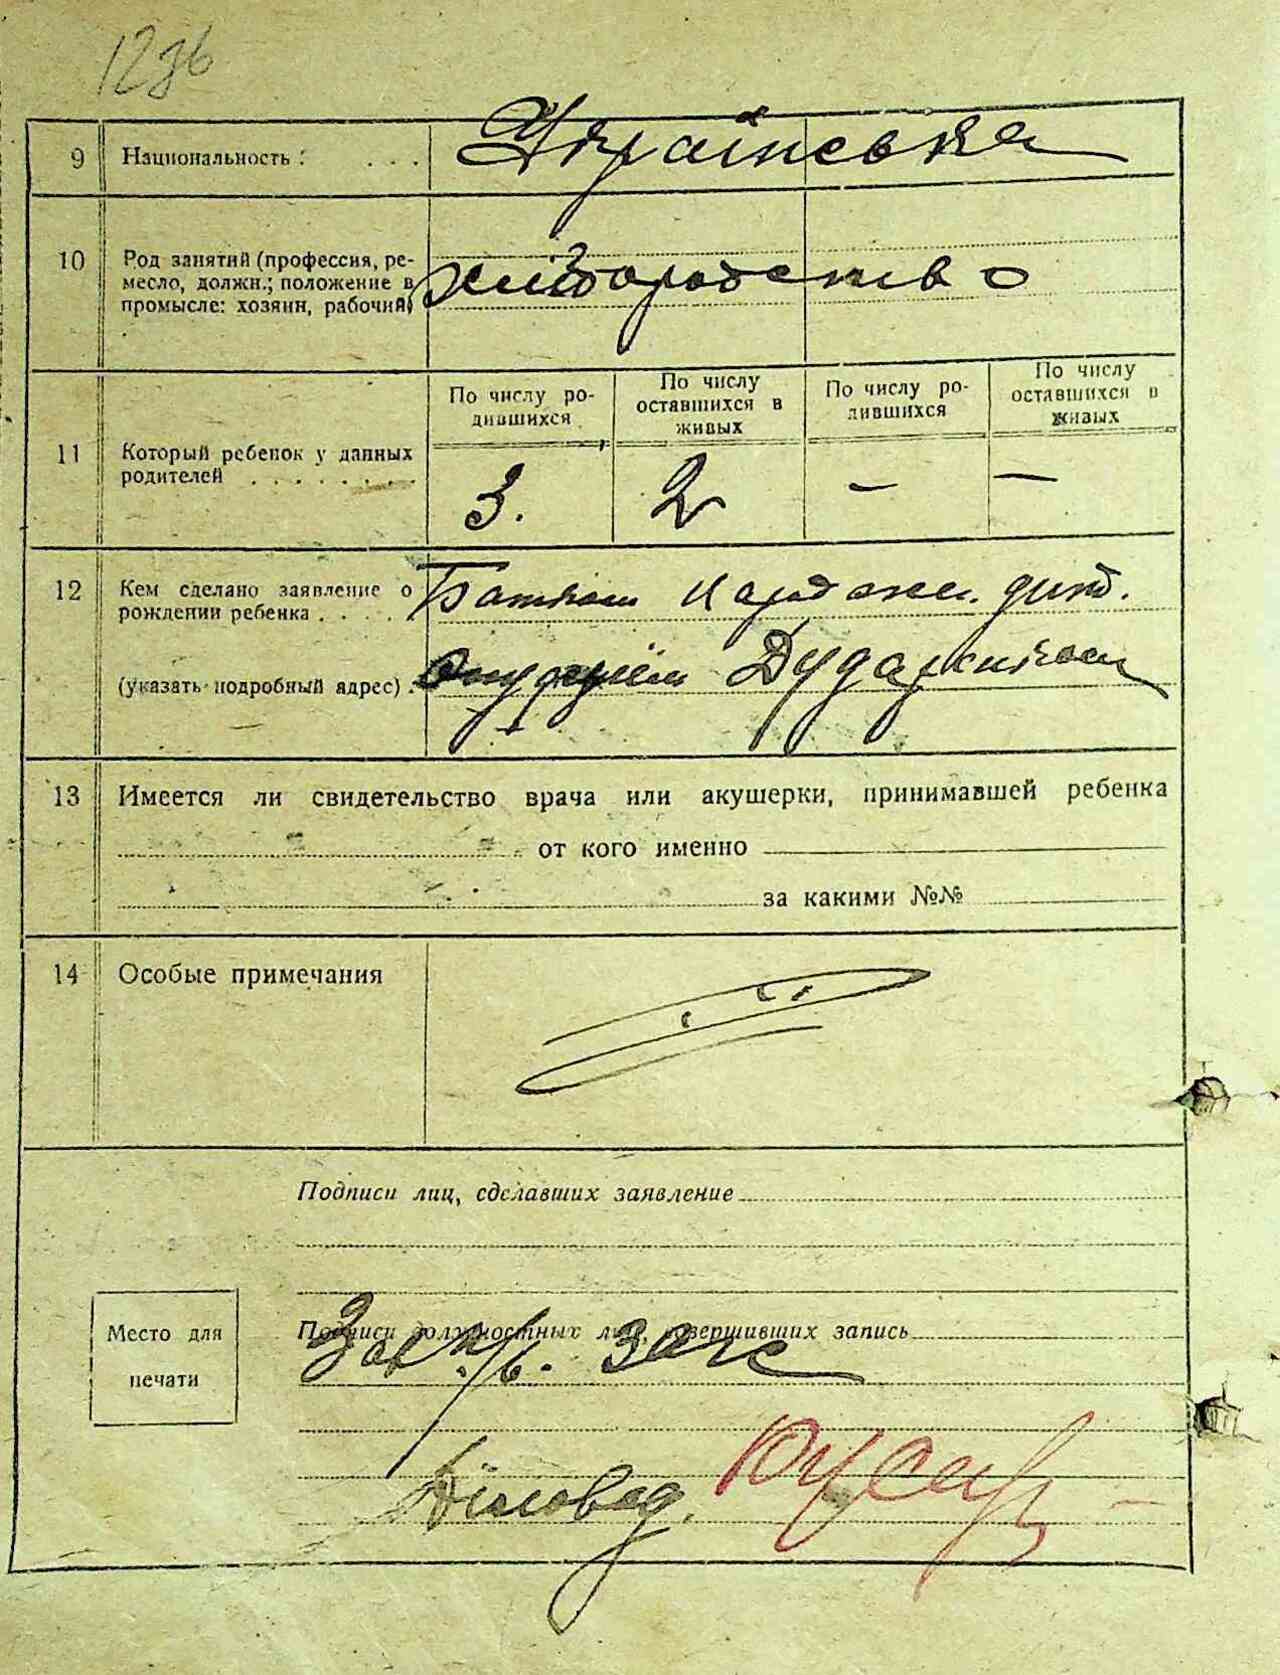 12зв
9 Национальность: . . . Українська
10 Род занятий (профессия, ре-
месло, должн.; положение в
промысле: хозяин, рабочий)
хліборобство
По числу ро-
дившихся
По числу
оставшихся в
живых
По числу ро-
дившихся
По числу
оставшихся в
живых
11 Который ребенок у данных
родителей . . . . . . . .
3. 2 — —
12 Кем сделано заявление о
рождении ребенка . . . .
Батьком народжен. дит.
(указать подробный адрес) .
13 Имеется ли свидетельство врача или акушерки, принимавшей ребенка
от кого именно
за какими №№
14 Особые примечания
Подписи лиц, сделавших заявление
Место для
печати
Подписи должностных лиц, совершивших запись
Зав. п/в. Загс
Діловод.